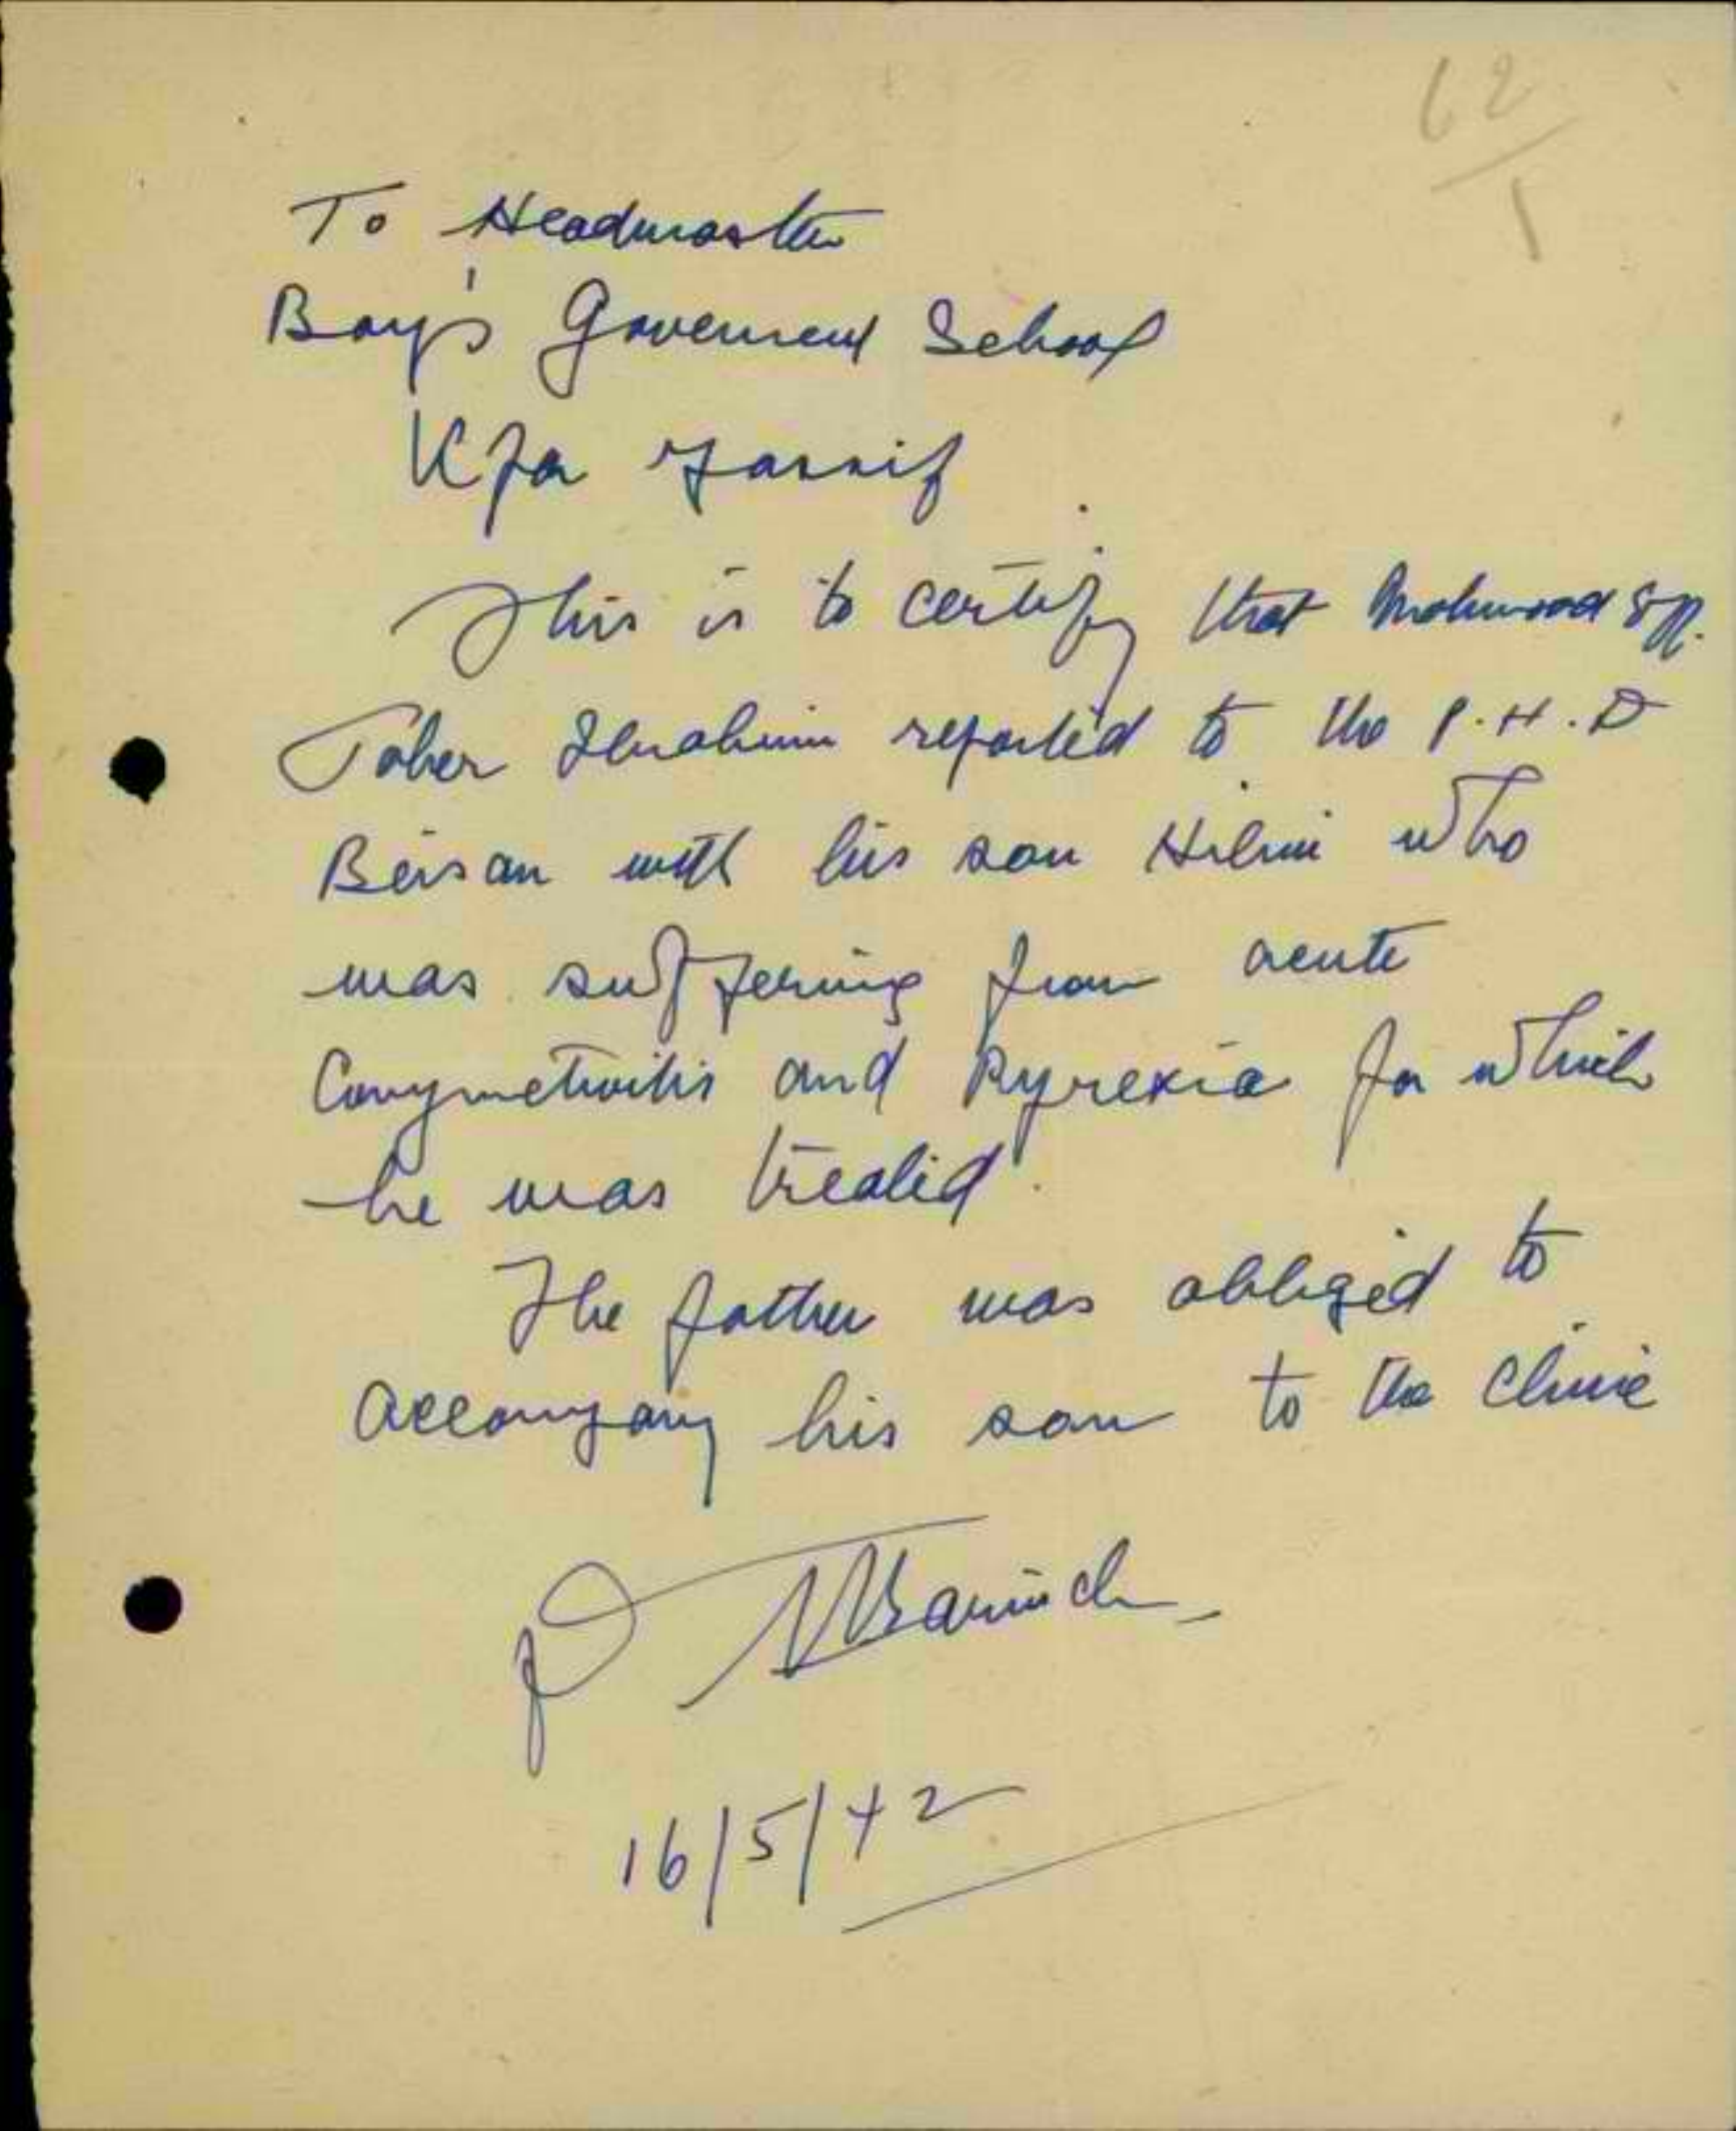 62
1
To Headmaster
Boy's Goverment School
Kfa Yassif
This is to certify that Mahmoud Eff.
Taher Ibrahim reported to the P.H.D
Beisan with his son Hilmi who
was suffering from acute
Conjunctivitis and Pyrexia for which
he was treated.
The father was obliged to
accompany his son to the clinic
16/5/42